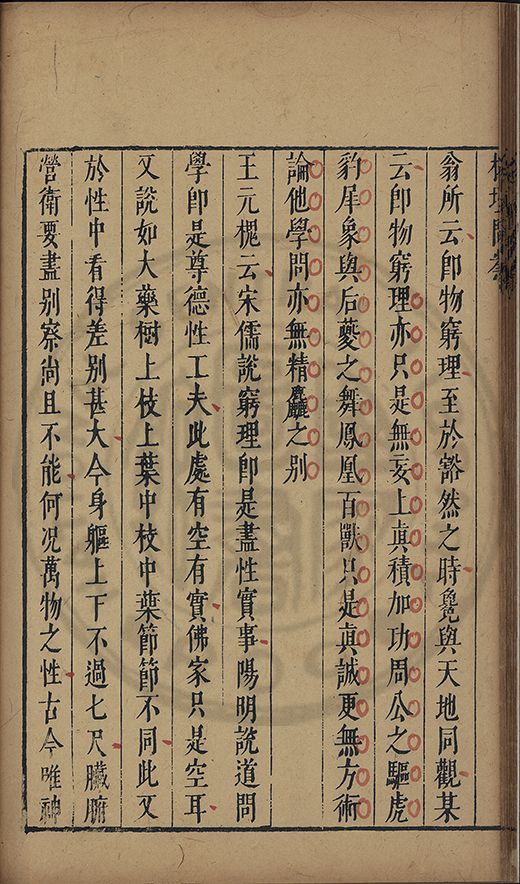 榕壇問業
翁所云卽物窮理至於豁然之時毚與天地同觀某
云卽物窮理亦只是無妄上真積加功周公之驅虎
豹犀象與后夔之舞鳳凰百獸只是真誠更無方術
論他學問亦無精麤之别
王元槐云宋儒說窮理卽是盡性實事陽明說道問
學卽是尊德性工夫此處有空有實佛家只是空耳
又說如大藥樹上枝上葉中枝中葉節節不同此又
於性中看得差别甚大今身軀上下不過七尺臟腑
營衛要盡别察尚且不能何況萬物之性古今唯神